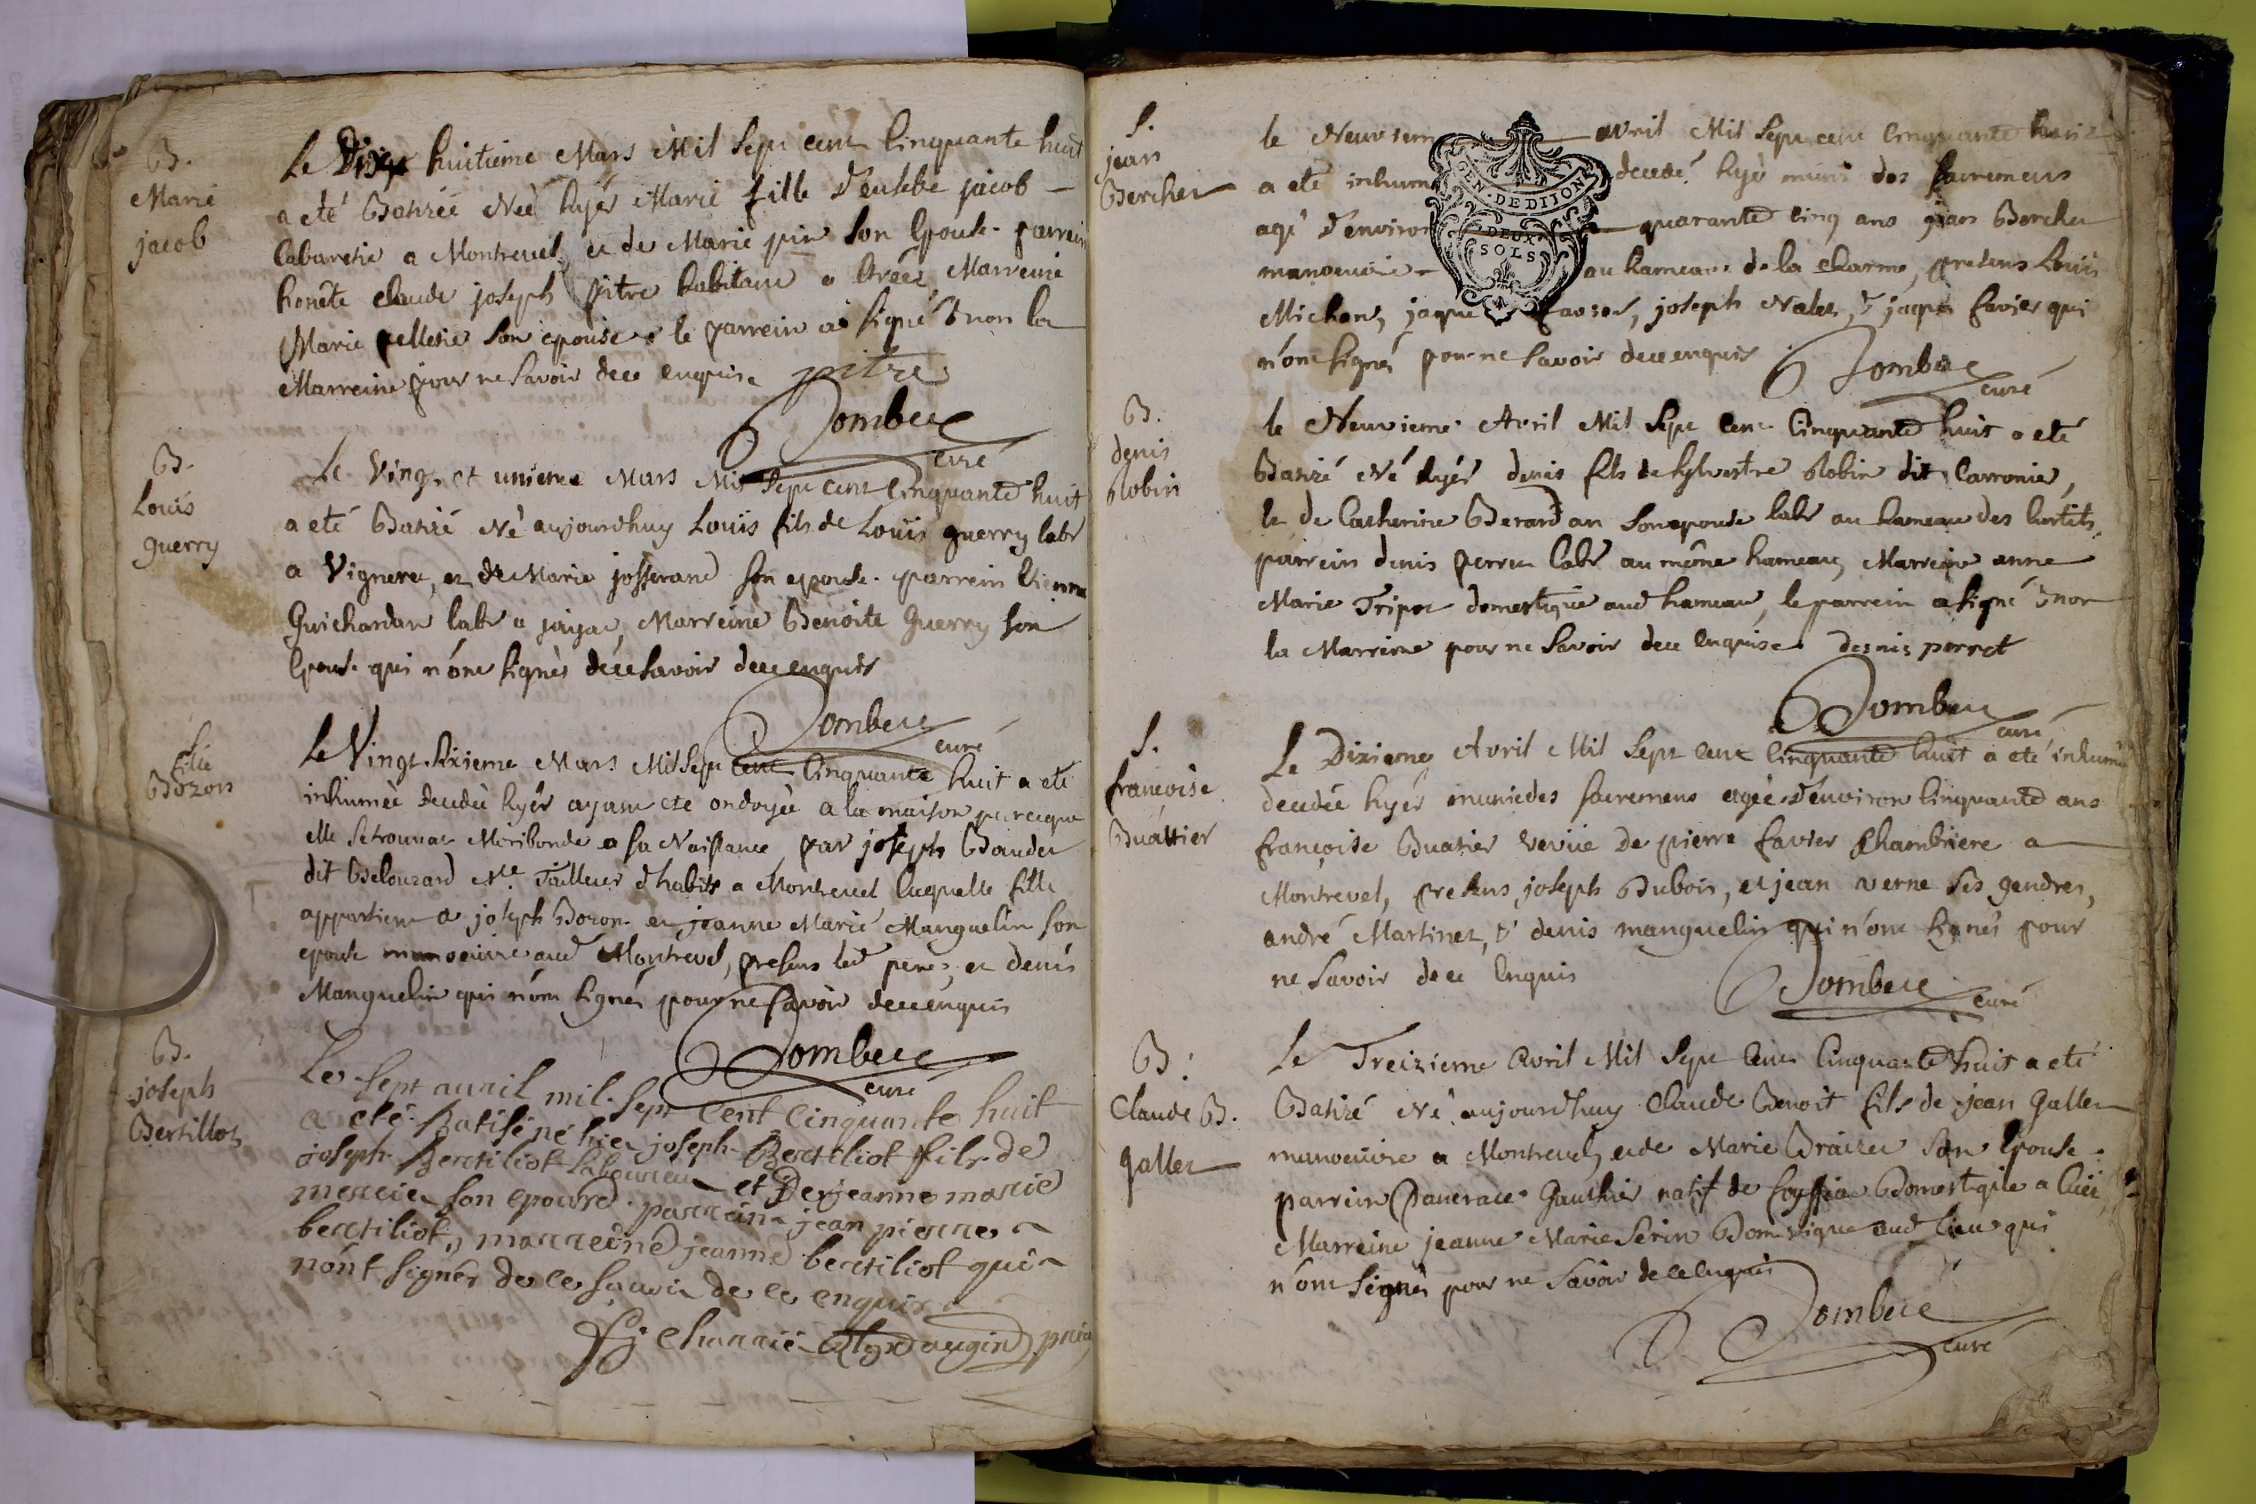 B.
Marie
jacob
Le Dix huitieme Mars Mil Sept cent Cinquante huit
a eté Batizée Née hyér Marie fille d'eusebe jacob
Cabaretié a Montrevel, et de Marie pin son Epouse. parrein
honête claude joseph pitre habitant a Marreine
Marie pelletie son epouse le parrein a signé & non la
Marreine pour ne savoir de ce enquise pitre
Dombey
curé
B.
Louis
guerry
Le Vingt et unieme Mars Mil Sept cent Cinquante huit
a eté Batizé Né aujourdhuy Louis fils de Louis guerry labr
a Vigneret, et de Marie josserand son epouse. parrein Etienne
Guichardan labr a jayat, Marreine Benoite Guerry son
Epouse qui n'ont signés de ce savoir de ce enquis
Dombey
curé
filie
Bozon
Le Vingt sixieme Mars Mil Sept Cent Cinquante huit a eté
inhumée decedée hyér ayant eté ondoyée a la maison parceque
elle se trouvoit Moribonde a sa Naissance par joseph Baudet
dit Belouzard Me Tailleur d'habits a Montrevel laquelle fille
appartient a joseph Bozon et jeanne Marie Manguelin son
epouse manoeuvre aud Montrevel, presens led pere, et denis
Manguelin qui n'ont signés pour ne savoir de ce enquis
Dombey
curé
B.
joseph
Bertillot
Le sept avril mil sept cent cinquante huit
a eté Batisé né hier joseph Bertiliot fils de
joseph Bertiliot laboureur et De jeanne marie
mercier son epouse parrein jean pierre
bertiliot, marreine jeanne bertiliot qui
n'ont signés de ce savoir de ce enquis
S.
jean
Bercher
le Neuviem avril Mil Sept cent Cinquante huit
a eté inhum decedé hyér muni des sacremens
agé d'environ quarante cinq ans jean Bercher
manoeuvre au hameau de la charme, presens Louis
Michon, jaque joseph Nalet, & jaque favier qui
n'ont signés pour ne savoir de ce enquis
GEN. DE DIJON
DEUX
SOLS
Dombey
curé
B.
denis
Robin
le Neuvieme Avril Mil Sept Cent Cinquante huit a eté
Batizé Né hyér denis fils de sylvestre Robin dit Carronié,
et de Catherine Berardan son epouse labr au hameau des
parrein denis perret labr au même hameau, Marreine anne
Marie Tripoz domestique aud hameau, le parrein a signé & non
la Marreine pour ne savoir de ce enquise denis perret
Dombey
curé
S.
francoise
Buattier
Le Dixieme Avril Mil Sept Cent Cinquante huit a eté inhumée
decedée hyér munie des sacremens agée d'environ Cinquante ans
françoise Buatier veuve de pierre favier Chambriere a
Montrevel, presens joseph Dubois, et jean verne ses gendres,
andré Martinet, & denis manguelin qui n'ont signés pour
ne savoir de ce enquis
Dombey
curé
B.
Claude B.
gallet
Le Treizieme Avril Mil Sept Cent Cinquante huit a eté
Batizé Né aujourdhuy Claude Benoit fils de jean gallet
manoeuvre a Montrevel, et de Marie son Epouse.
parrein pancrace Gauthier natif de Domestique a
Marreine jeanne Marie Serin Domestique aud lieu qui
n'ont signés pour ne savoir de ce enquis
Dombey
curé